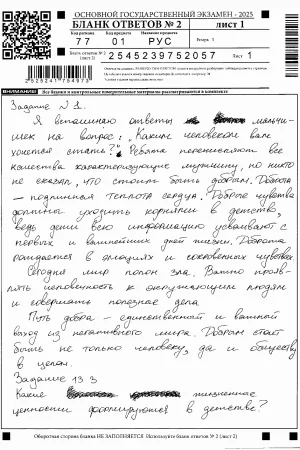 ОСНОВНОЙ ГОСУДАРСТВЕННЫЙ ЭКЗАМЕН - 2025
БЛАНК ОТВЕТОВ № 2 лист 1
Код региона Код предмета Название предмета
77 01 РУС Резерв - 5
Бланк ответов № 2 (лист 2) 2545239752057
2526241784973
ВНИМАНИЕ Все бланки и контрольные измерительные материалы рассматриваются в комплекте
Задание №1.
Я вспоминаю ответы мальчи-
шек на вопрос: "Каким человеком вам
хочется стать?" Ребята перечисляют все
качества характеризующие мужчину, но никто
не сказал, что стоит быть добрым. Доброта
- подлинная теплота сердца. Добрые чувства
должны уходить корнями в детство,
ведь дети всю информацию усваивают с
первых и важнейших дней жизни. Доброта
рождается в эмоциях и сокровенных чувствах
Сегодня мир полон зла. Важно прояв-
лять человечность к окружающим людям
и совершать полезное дела
Путь добра - единственный и важный
выход из негативного мира. Добрым стоит
быть не только человеку, да и обществу
в целом.
Задание 13 3
Какие жизненные
ценности формируются в детстве?
Оборотная сторона бланка НЕ ЗАПОЛНЯЕТСЯ Используйте бланк ответов № 2 (лист 2)